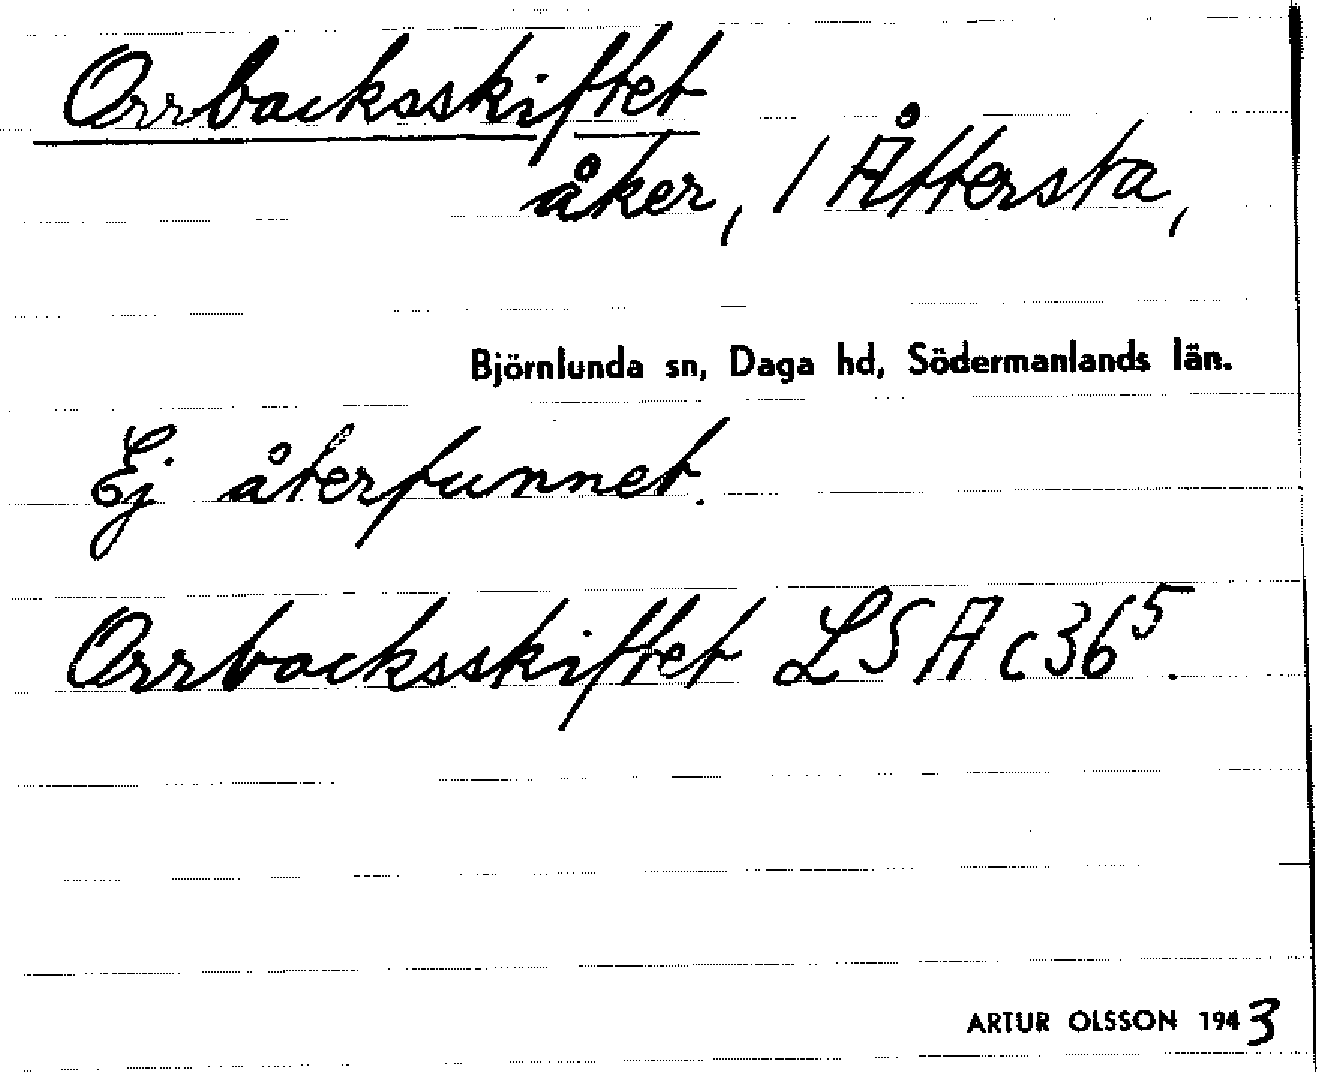 Orrbacksskiftet
åker, / Åttersta,
Björnlunda sn, Daga hd, Södermanlands län.
Ej återfunnet.
Orrbacksskiftet LSA c36⁵.
ARTUR OLSSON 1943